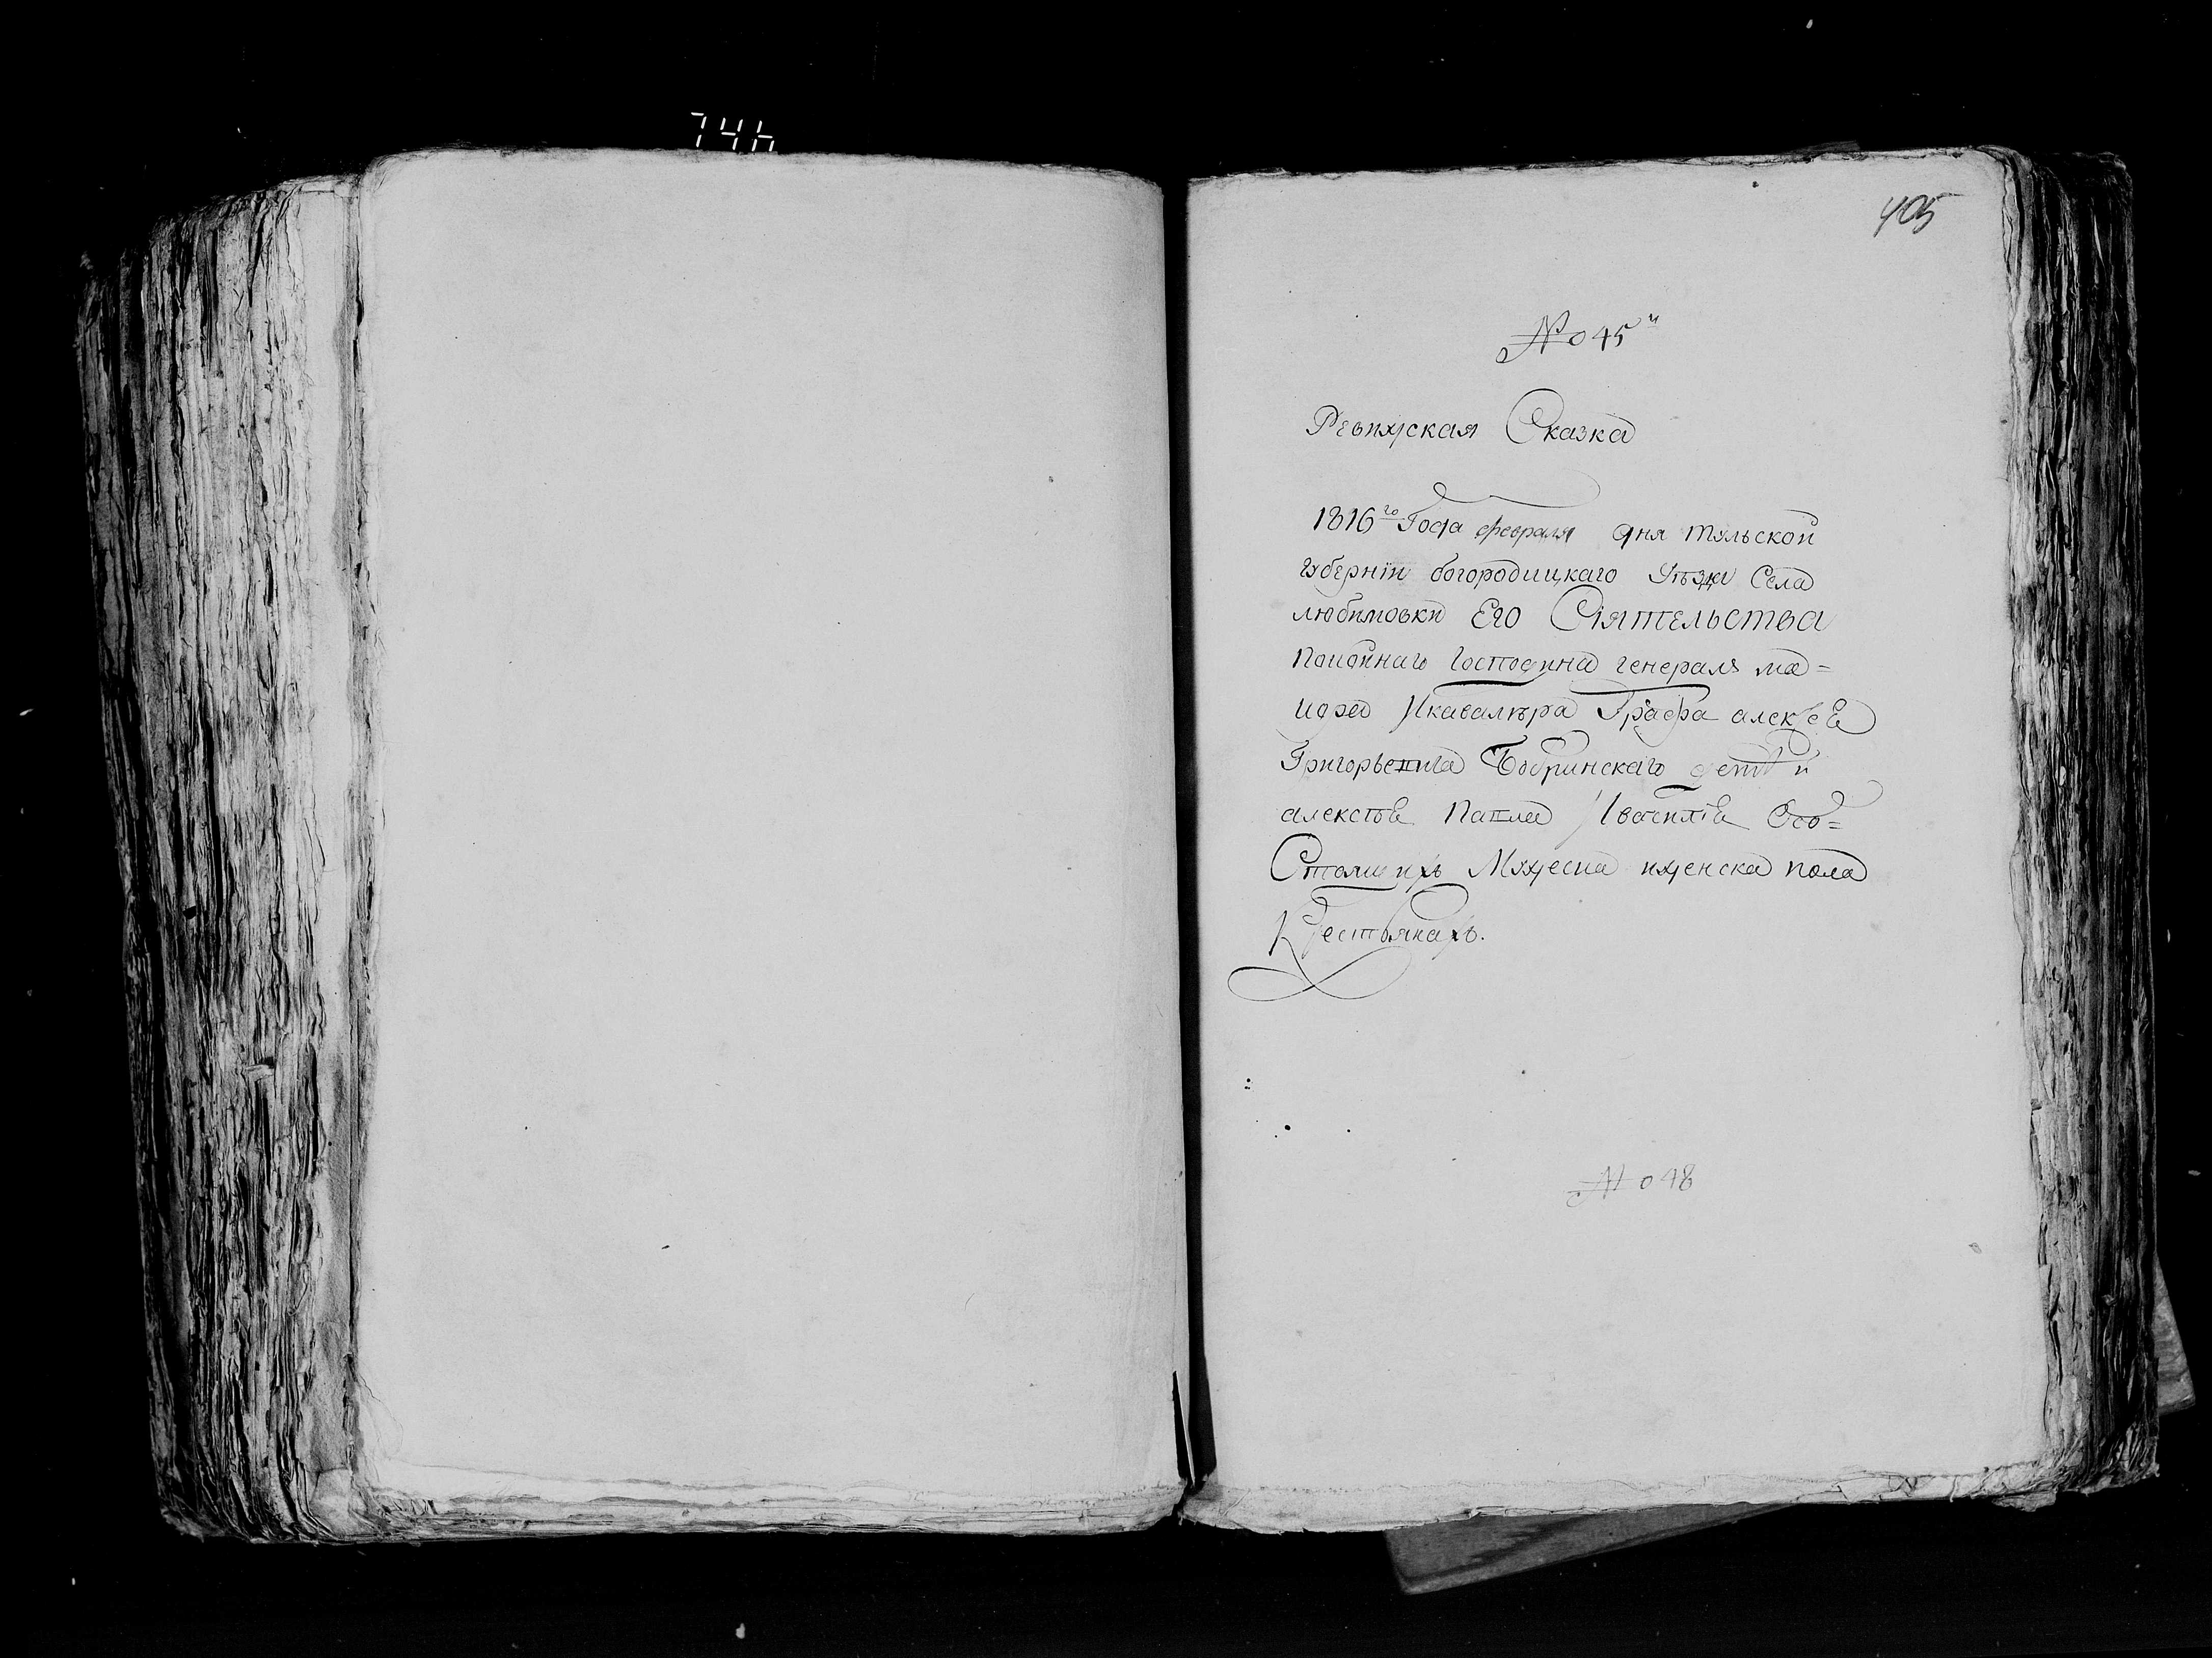 744
405
№ 45й
Ревижская Сказка
1816го Года февраля дня Тульской
губернїи богородицкаго уѣзда Села
любимовки Его Сїятельства
покойнаго господина генералъ ма=
иора Икавалера Графа алексея
Григорьевича Бобринскаго детей
алексѣя Павла Ивасилія Осо=
Стоящихъ Мужеска иженска пола
Крестьянахъ.
№ 48